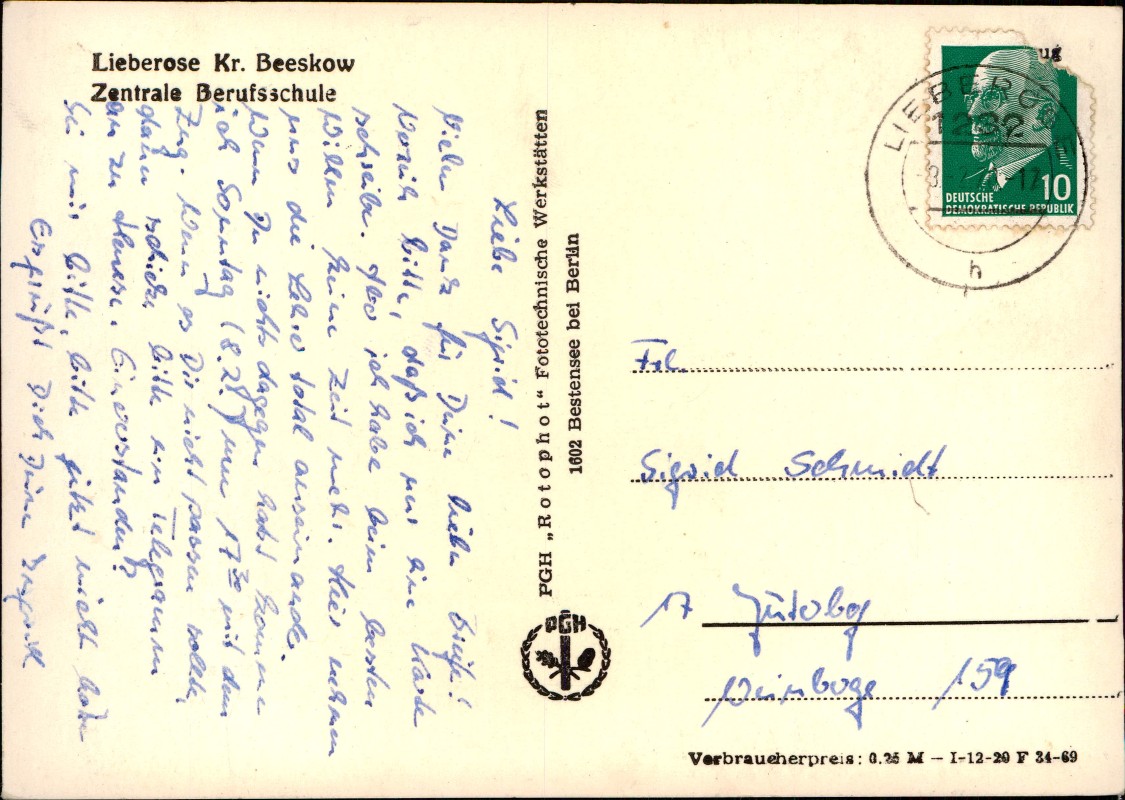 Lieberose Kr. Beeskow
Zentrale Berufsschule
Liebe Sigrid!
Vielen Dank für Deine lieben Grüße!
bitte, daß ich nur eine Karte
schreibe. Aber ich habe beim besten
Willen keine Zeit mehr. Hier nehmen
uns die Lehrer total auseinander.
Wenn Du nichts dagegen hast komme
ich Sonntag (8.2.) 17³⁰ mit dem
Zug. Wenn es Dir nicht passen sollte,
dann schicke bitte ein Telegramm
an zu Hause. Einverstanden?
Sei mir bitte, bitte nicht böse
Es grüßt Dich Deine
PGH „Rotophot“ Fototechnische Werkstätten
1602 Bestensee bei Berlin
PGH
ug
LIEBEROSE
1232
h
DEUTSCHE
DEMOKRATISCHE REPUBLIK
10
Frl.
Sigrid Schmidt
17 Jüterbog
159
Verbraucherpreis: 0.25 M — I-12-20 F 34-69